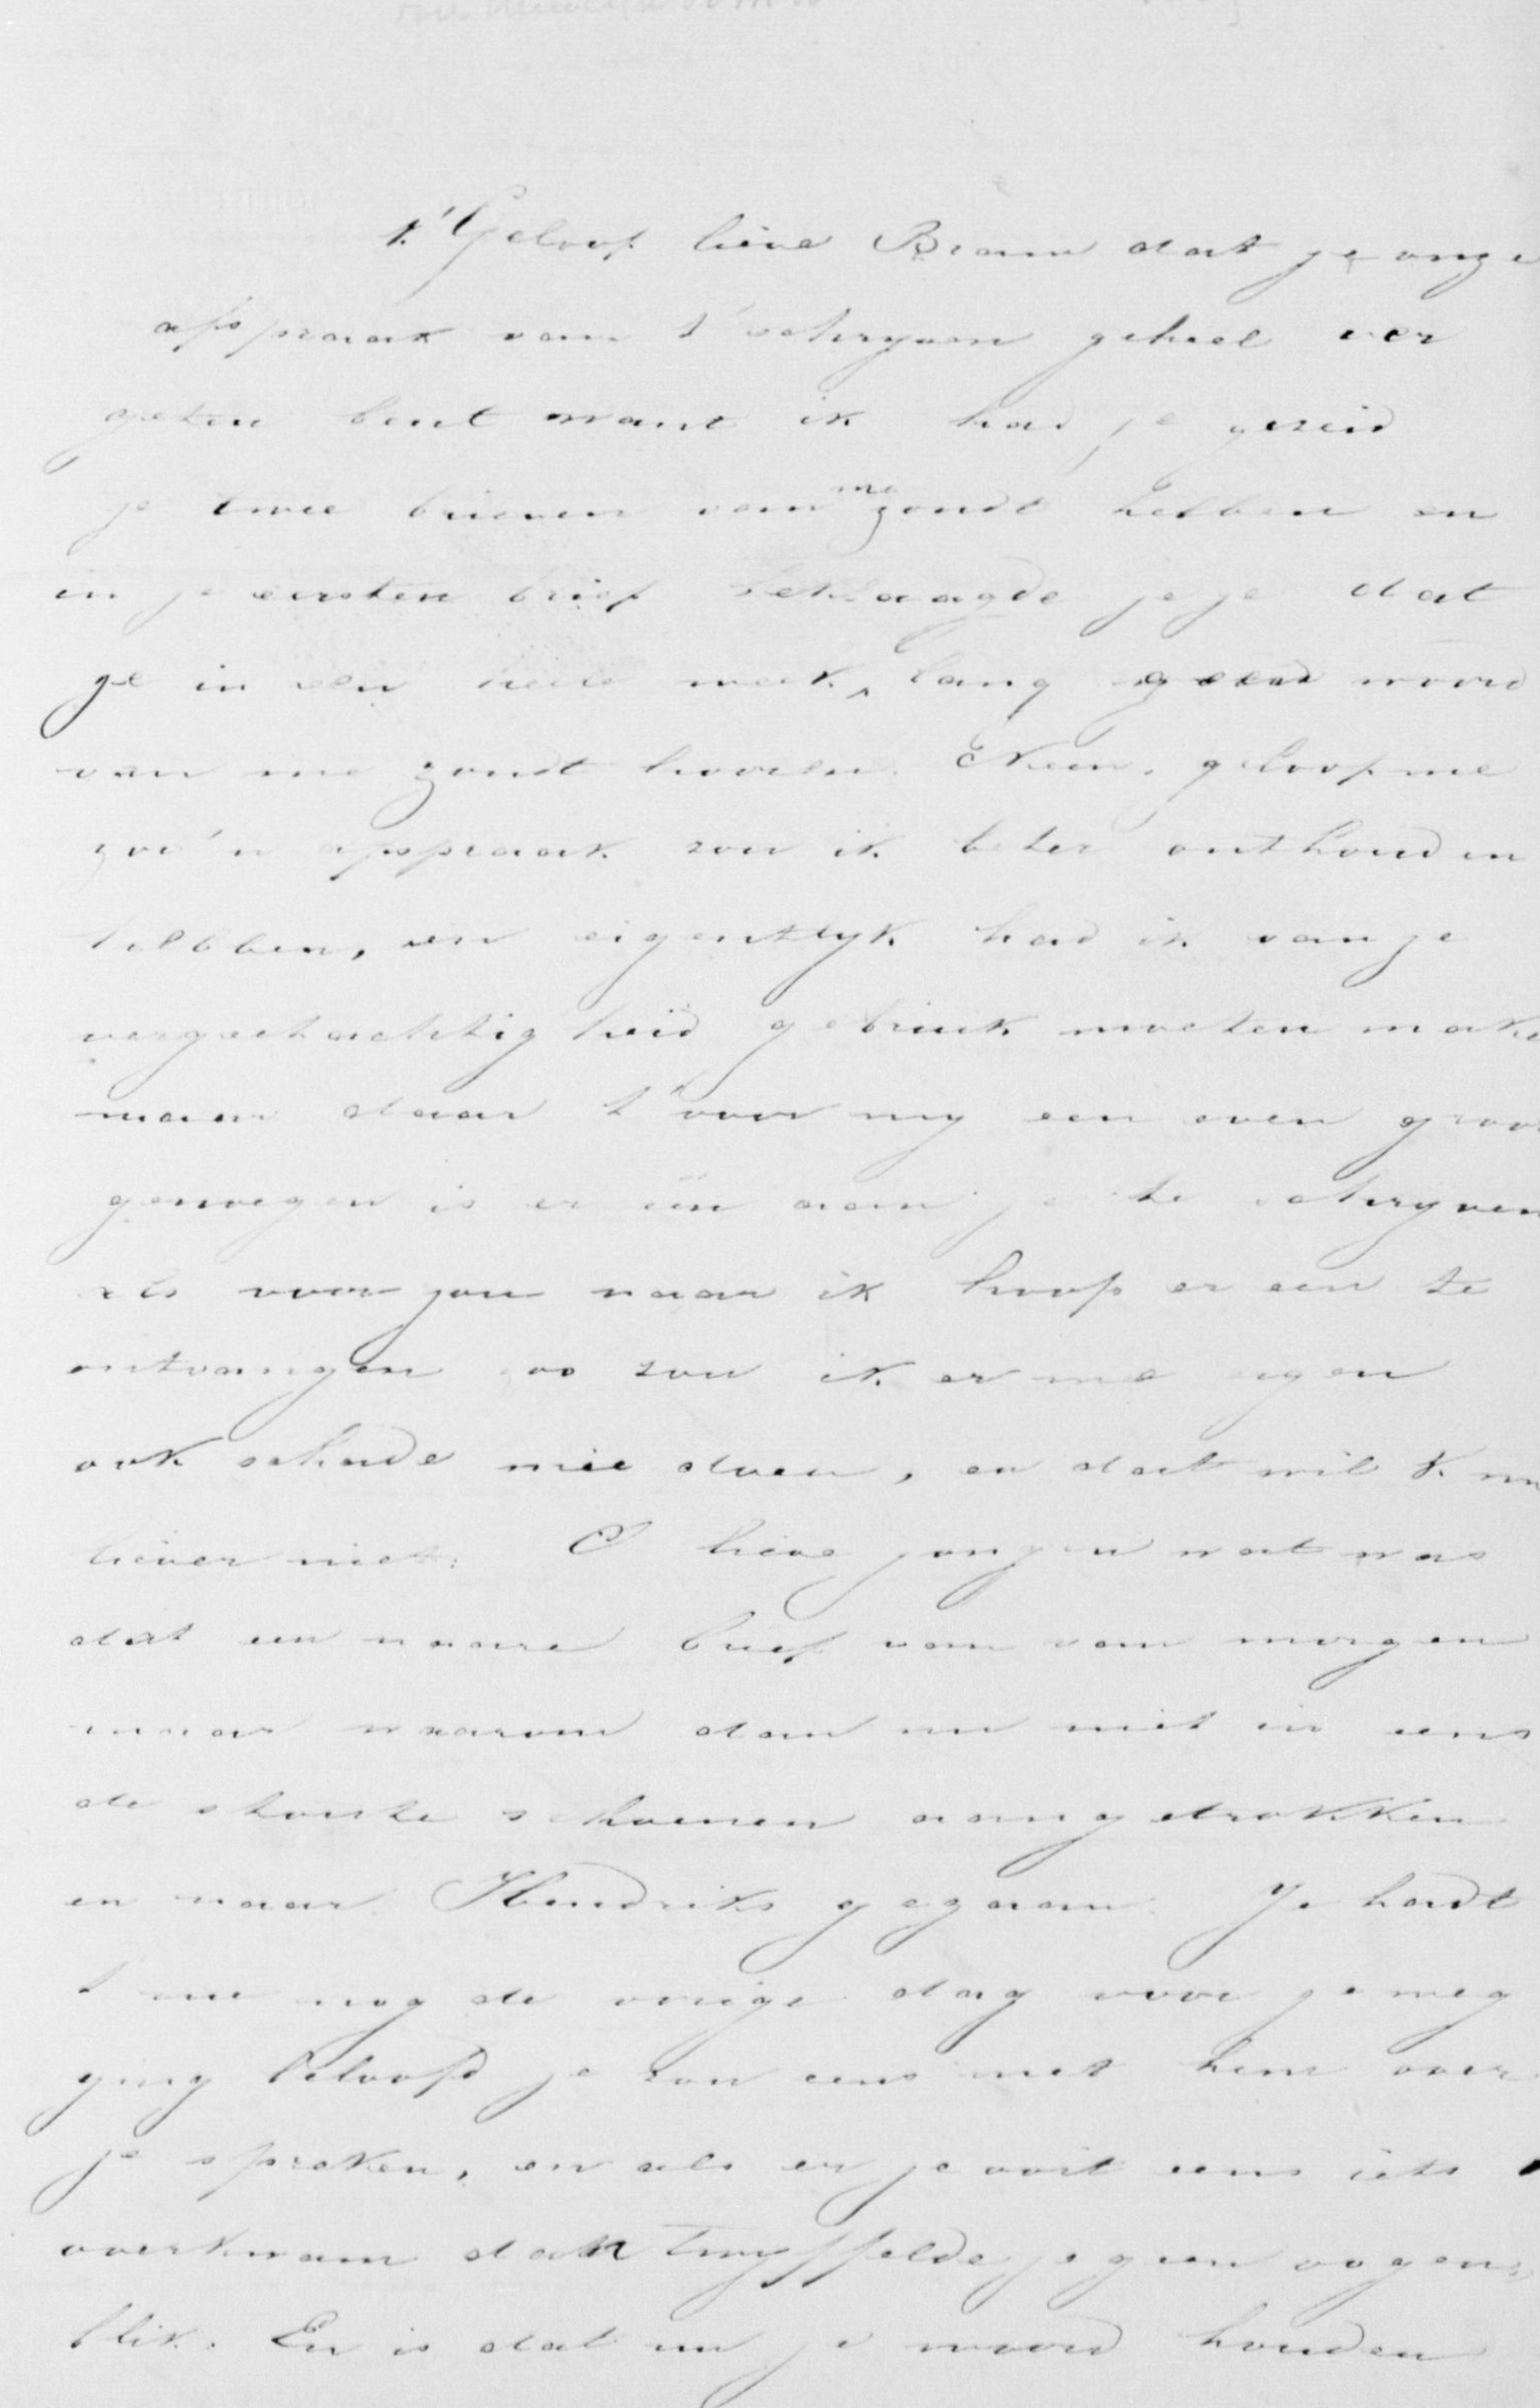 k' Geloof lieve Bram dat je onze
afspraak van t' schryven geheel ver
geten bent want ik had je gezeid
je twee brieven van me zoudt hebben en
in je eersten brief beklaagde je je dat
ge in een heele week lang geen woord
van me zoudt hooren. Neen, geloof me
zoo'n afspraak zou ik beter onthouden
hebben, en eigentlyk had ik van je
vergeetachtigheid gebruik moeten make
maar daar t' voor my een even groo
genoegen is er een aan je te schryven
als voor jou naar ik hoop er een te
ontvangen zoo zou ik er me eigen
ook schade mee doen, en dat wil k nu
liever niet. O lieve jongen wat was
dat een naare brief van van morgen
maar waarom dan nu niet in eens
de stoute schoenen aangetrokken
en naar Hendriks gegaan. Je hadt
t me nog de vorige dag voor je weg
ging beloofd je zou eens met hem over
je spreken, en als er je ooit eens iets
overkwam dan twyffelde je geen oogen
blik. En is dat nu je woord houden